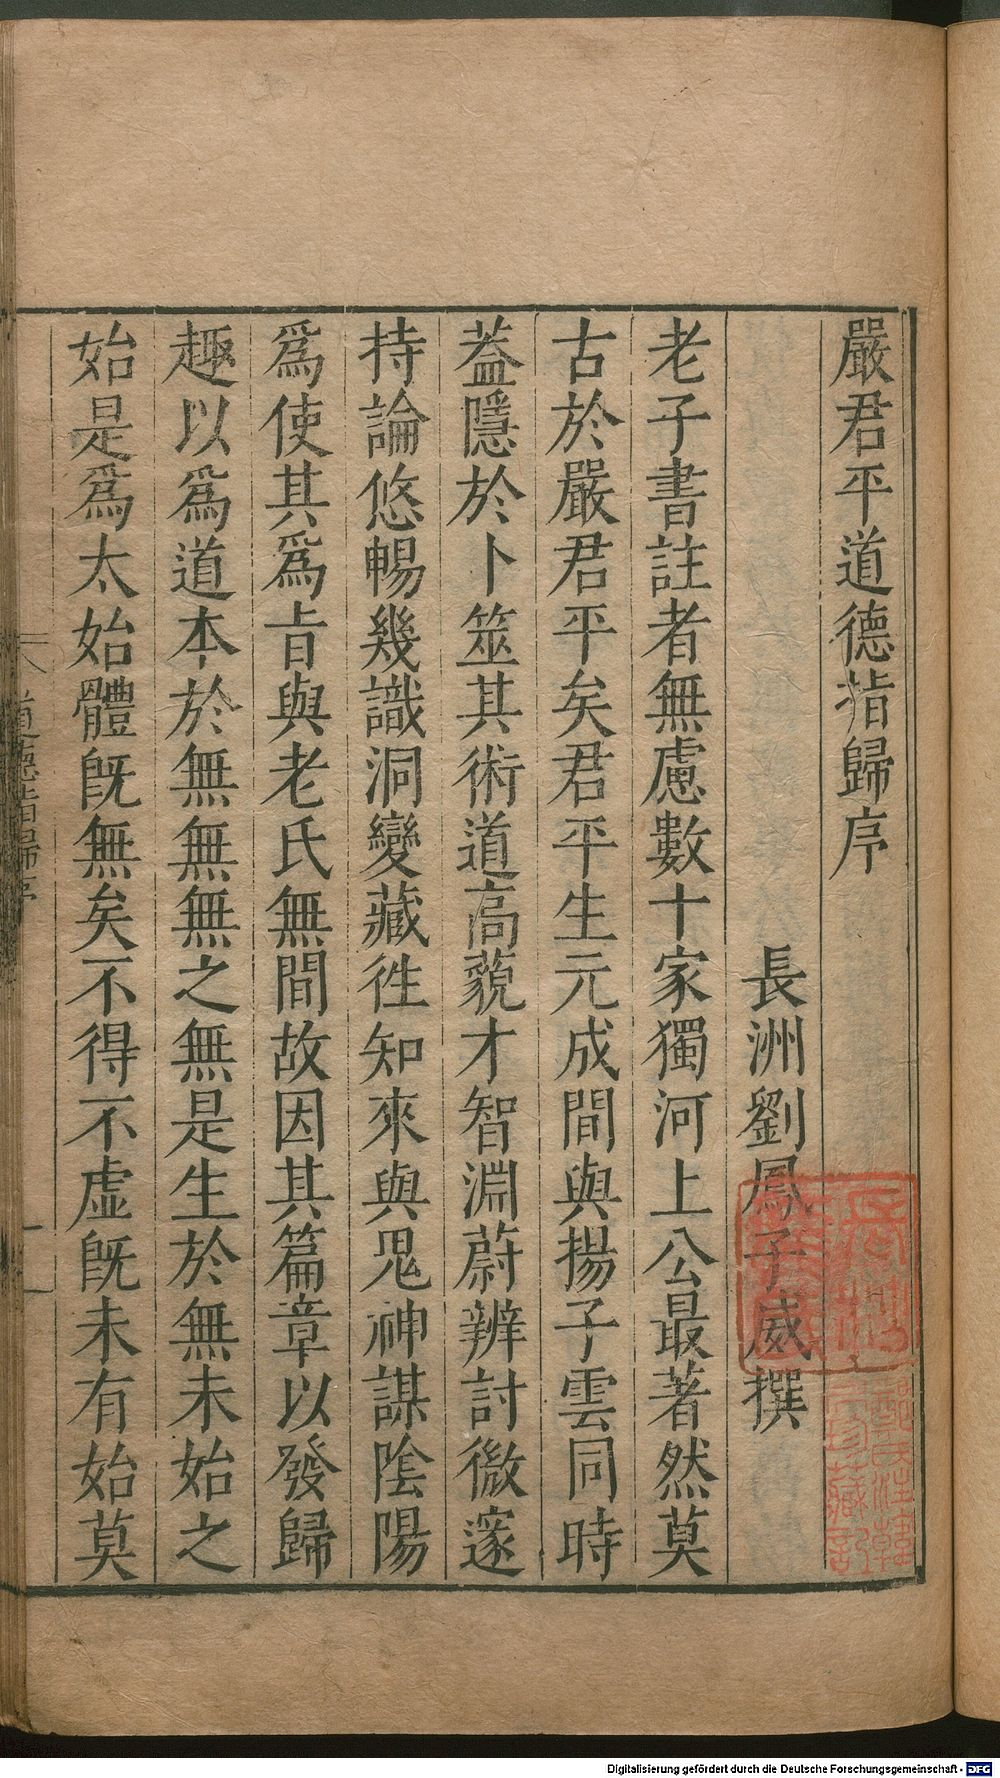 嚴君平道德指歸序
長洲劉鳳子威撰
老子書註者無慮數十家獨河上公最著然莫
古於嚴君平矣君平生元成間與揚子雲同時
葢隱於卜筮其術道高藐才智淵蔚辨討微邃
持論悠暢幾識洞變藏徃知來與鬼神謀陰陽
爲使其爲旨與老氏無間故因其篇章以發歸
趣以爲道本於無無無之無是生於無未始之
始是爲太始體旣無矣不得不虛旣未有始莫
道德指歸序
一
Digitalisierung gefördert durch die Deutsche Forschungsgemeinschaft - DFG